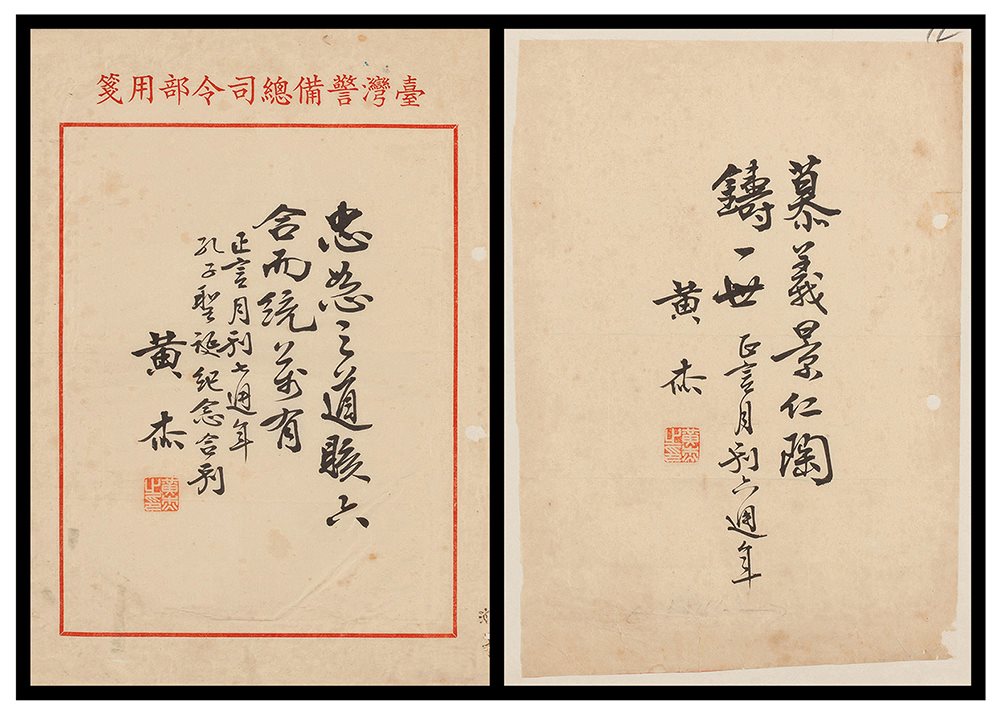 臺灣警備總司令部用箋
忠恕之道賅六
合而統萬有
正言月刊七週年
孔子聖誕紀念合刊
黃杰
黃杰之印
慕義景仁陶
鑄一世
正言月刊六週年
黃杰
黃杰之印